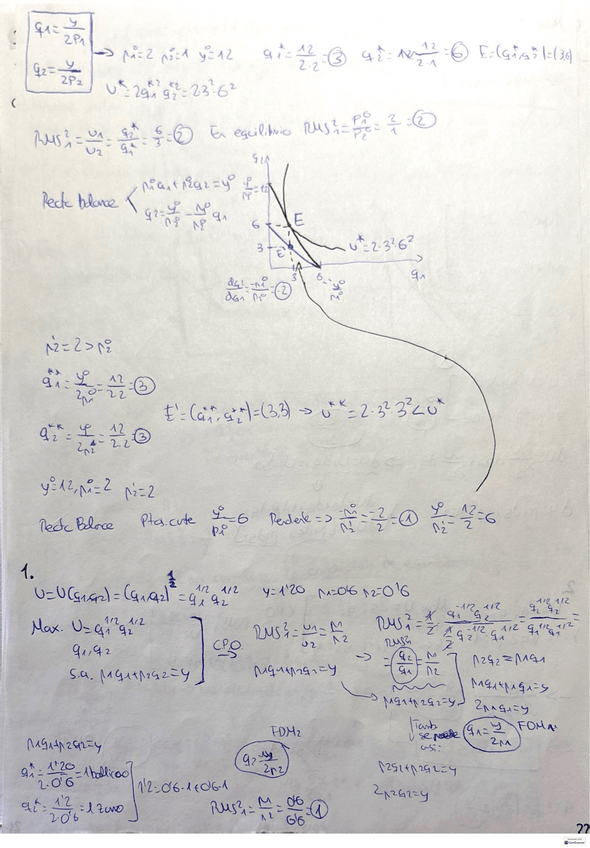 q1 = y/2p1
q2 = y/2p2
→ p1⁰=2 p2⁰=1 y⁰=12 q1* = 12/2·2 = 3 q2* = 12/2·1 = 6 E=(q1*,q2*)=(3,6)
U* = 2q1*² q2*² = 2·3²·6²
RMS₁² = U1/U2 = q2*/q1* = 6/3 = 2 En equilibrio RMS₁² = p1⁰/p2⁰ = 2/1 = 2
Recta Balance
p1⁰q1 + p2⁰q2 = y⁰
q2 = y⁰/p2⁰ - p1⁰/p2⁰ q1
q2
y⁰/p2⁰ = 12
6
E
3
E'
U* = 2·3²·6²
3
6 = y⁰/p1⁰
q1
dq2/dq1 = -p1⁰/p2⁰ = -2
p2' = 2 > p2⁰
q1** = y⁰/2p1⁰ = 12/2·2 = 3
E' = (q1**, q2**) = (3,3) → U** = 2·3²·3² < U*
q2** = y⁰/2p2' = 12/2·2 = 3
y⁰=12, p1⁰=2 p2'=2
Recta Balance Ptos. corte y⁰/p1⁰ = 6 Pendiente => -p1⁰/p2' = -2/2 = 1 y⁰/p2' = 12/2 = 6
1.
U=U(q1,q2)=(q1,q2)^1/2 = q1^1/2 q2^1/2 y=1'20 p1=0'6 p2=0'6
Max. U=q1^1/2 q2^1/2
q1,q2
s.a. p1q1+p2q2=y
CPO →
RMS₁² = U1/U2 = p1/p2
p1q1+p2q2=y
RMS₁² = 1/2 q1^-1/2 q2^1/2 / 1/2 q2^-1/2 q1^1/2 = q2^1/2 q2^1/2 / q1^1/2 q1^1/2 =
RMS₁²
→ = q2/q1 = p1/p2
p1q1+p2q2=y
p2q2 = p1q1
p1q1+p1q1=y
2p1q1=y
q1 = y/2p1 FDM1
Tamb se puede así:
p2q2+p2q2=y
2p2q2=y
FDM2
q2 = y/2p2
p1q1+p2q2=y
q1* = 1'20/2·0'6 = 1 bollicao
q2* = 1'2/2·0'6 = 1 zumo
1'2=0'6·1+0'6·1
RMS₁² = p1/p2 = 0'6/0'6 = 1
22
CamScanner